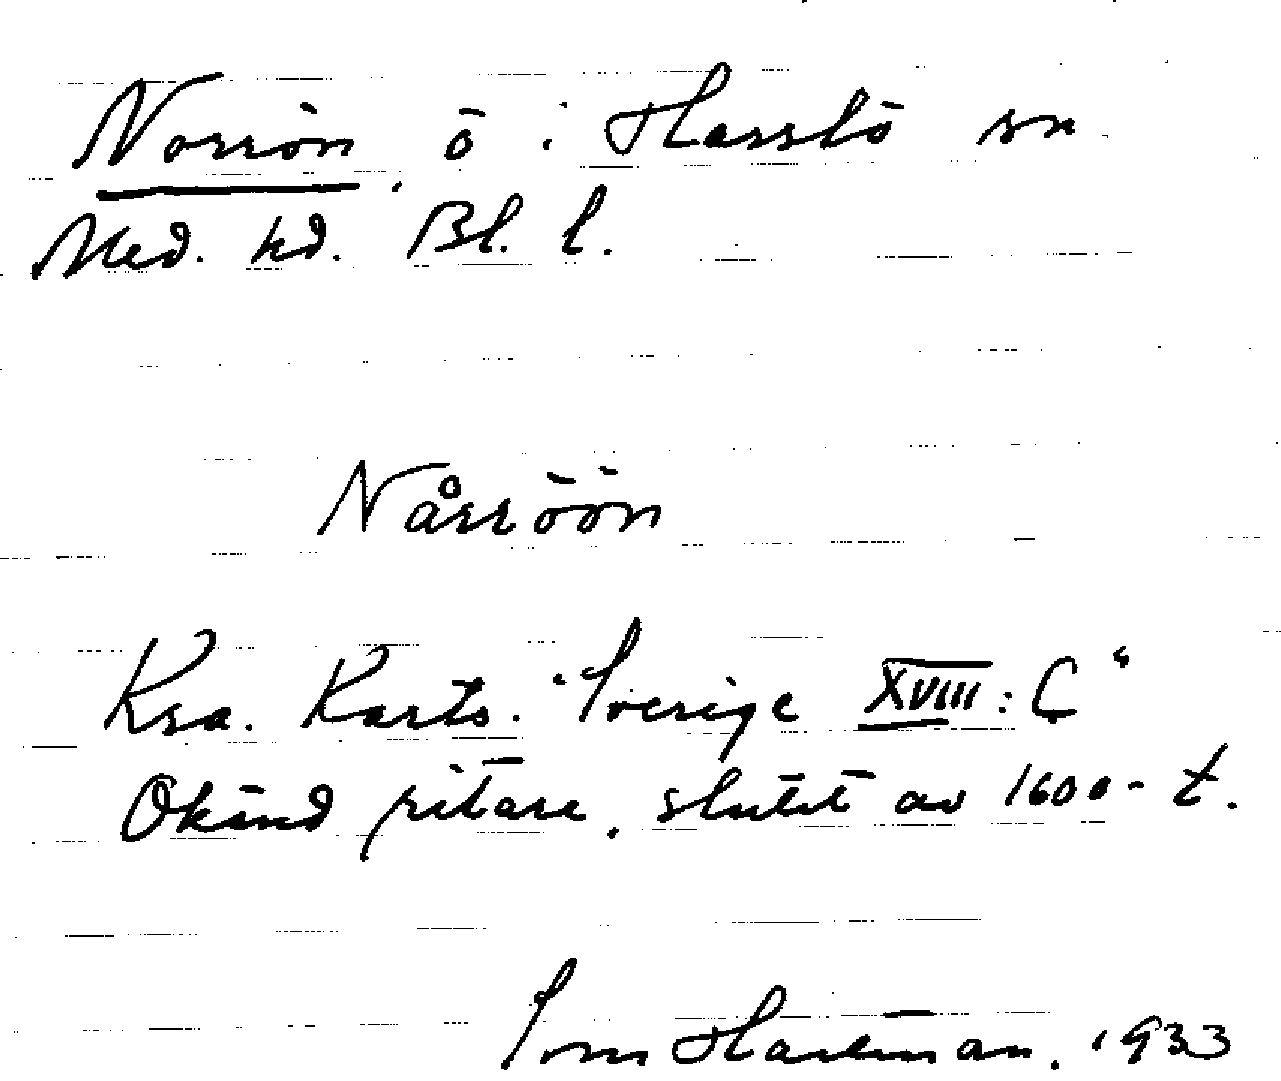 Norrön, ö i Hasslö sn
Med. hd. Bl. l.
Nårröön
Kra. Karts. "Sverige XVIII: C"
Okänd ritare, slutet av 1600-t.
Hartman. 1933